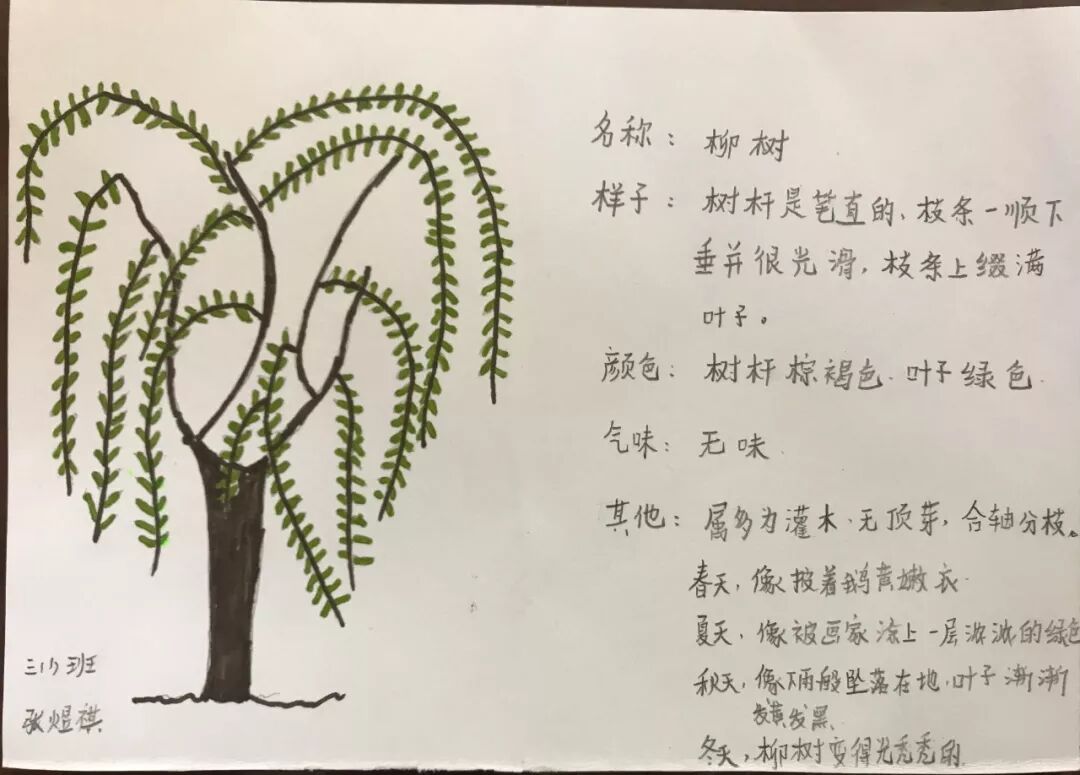 名称：柳树
样子：树杆是笔直的、枝条一顺下
垂并很光滑，枝条上缀满
叶子。
颜色：树杆棕褐色．叶子绿色．
气味：无味．
其他：属多为灌木．无顶芽，合轴分枝。
春天，像披着鹅黄嫩衣．
夏天，像被画家涂上一层浓浓的绿色
秋天，像下雨般坠落在地，叶子渐渐
发黄发黑．
冬天，柳树变得光秃秃的．
三(1)班
张煜祺